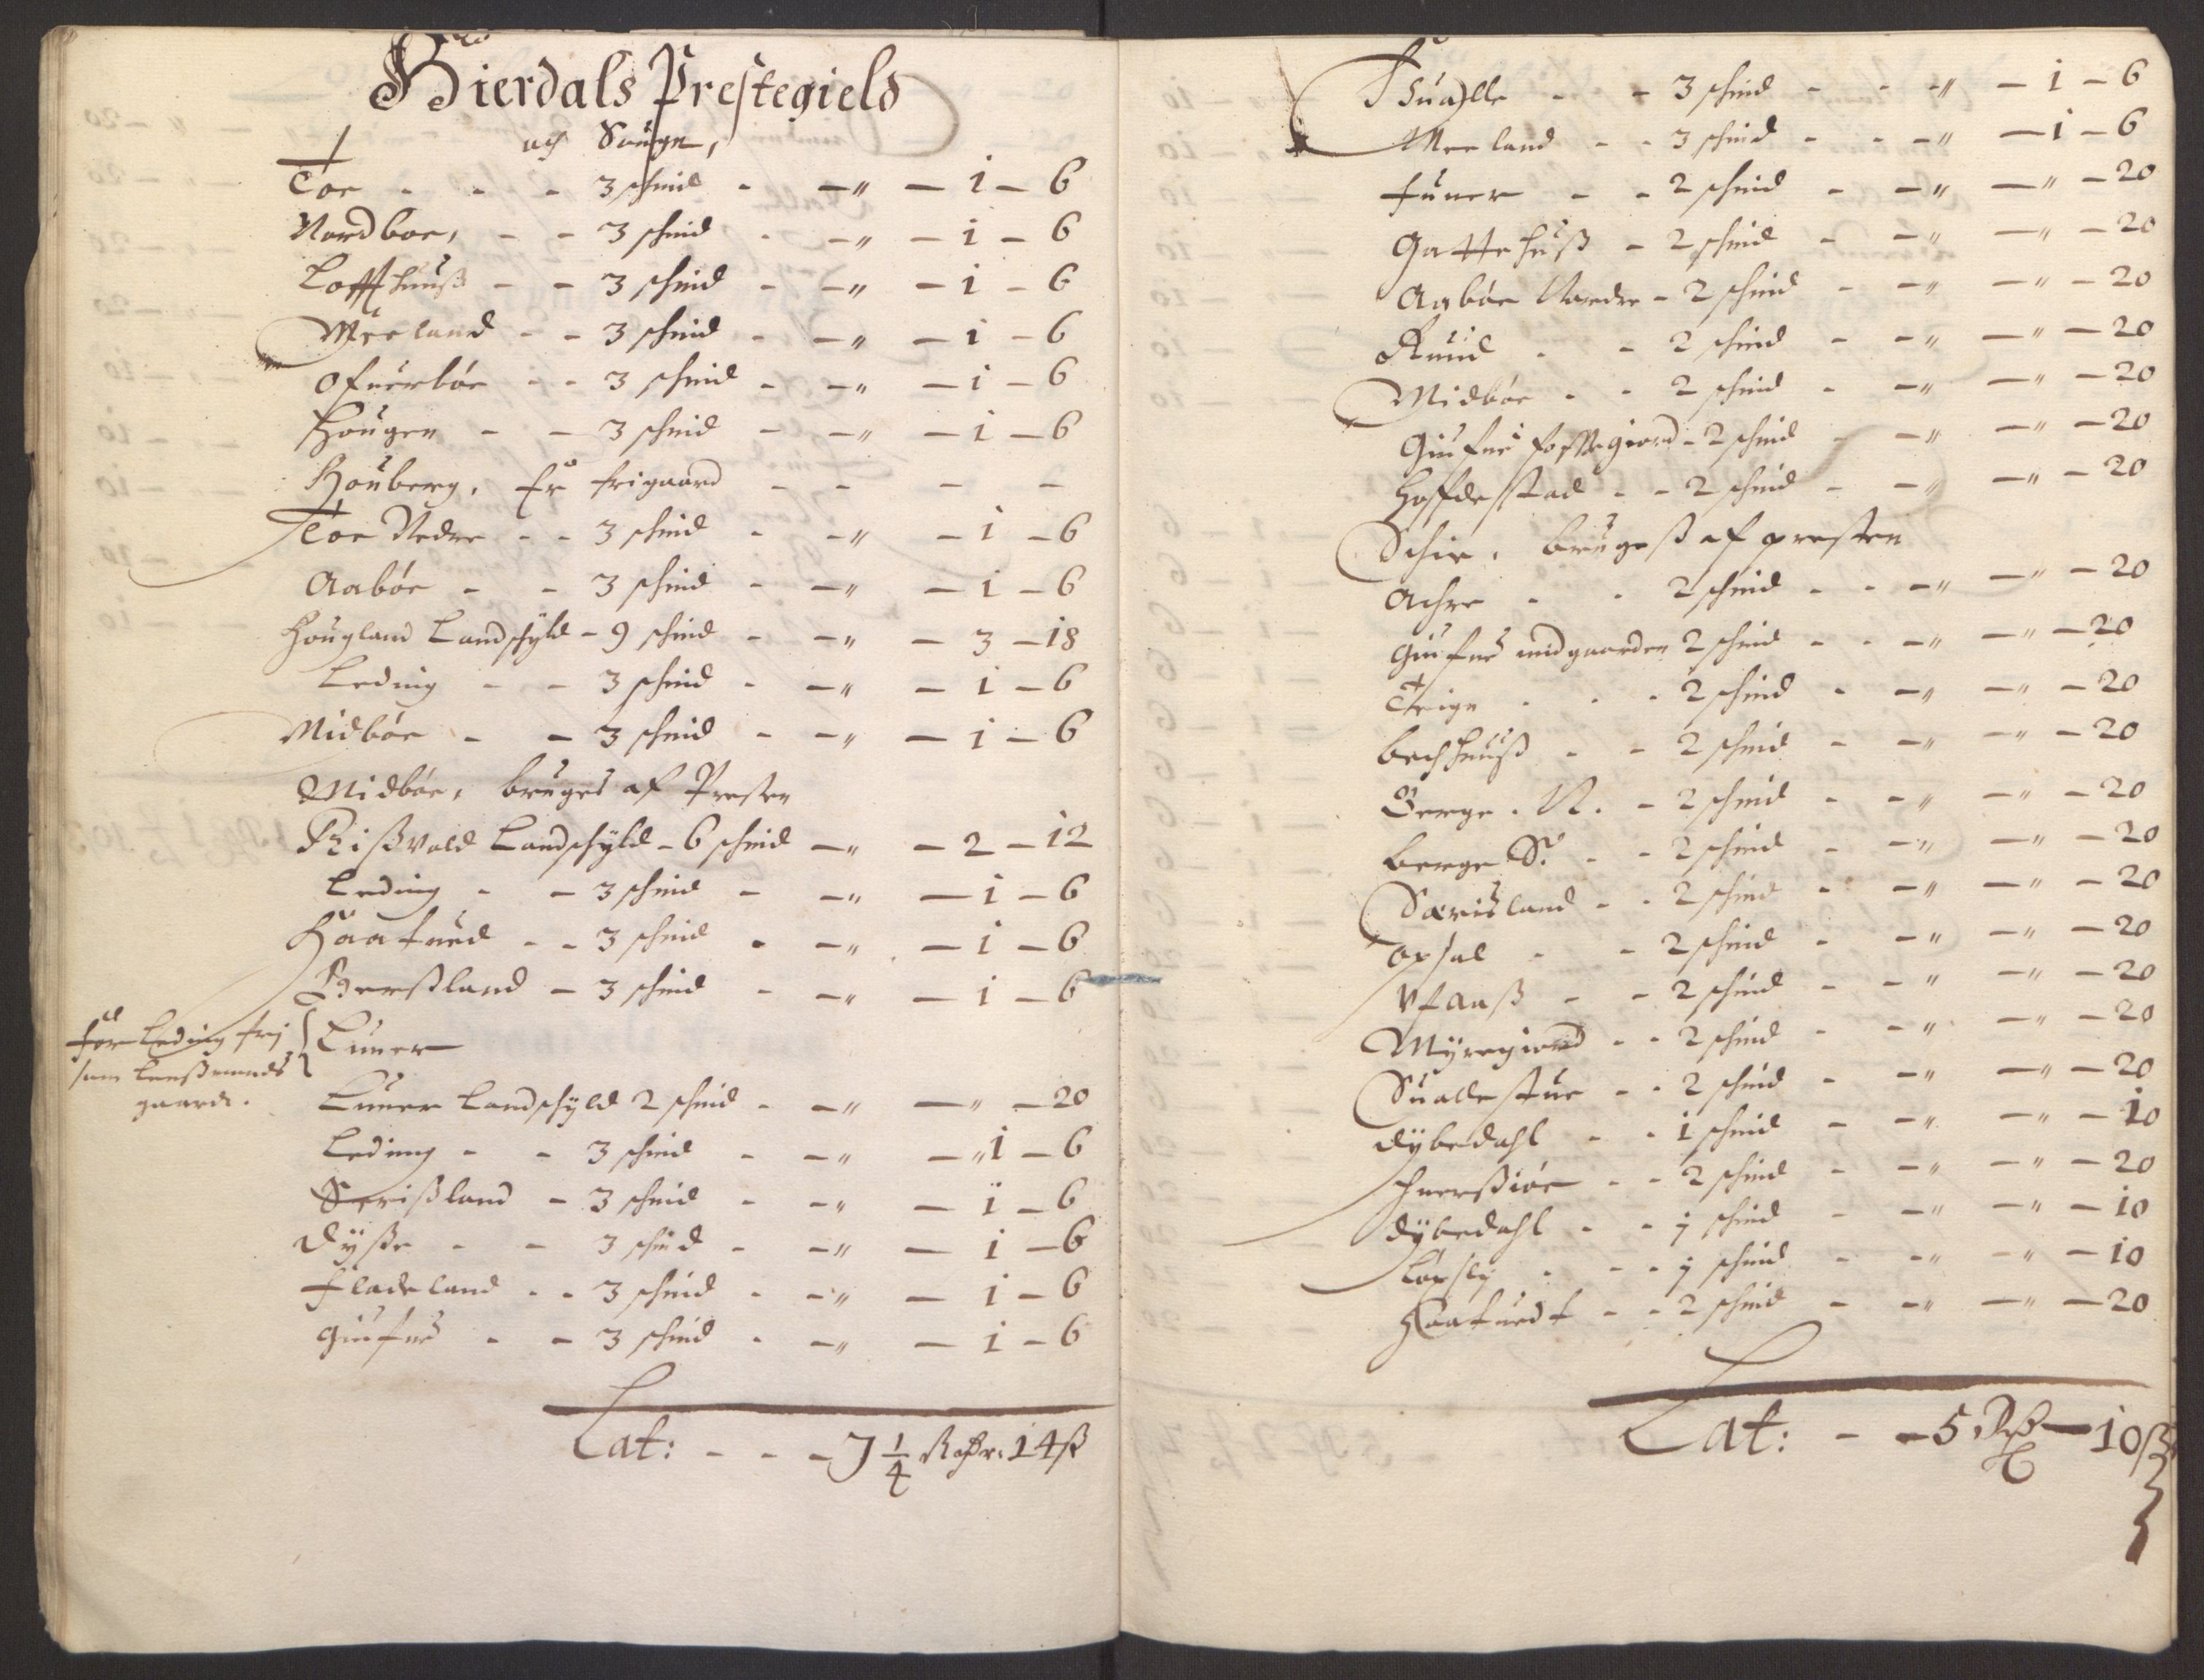 Hierdals Prestegield
och Sougn,
Toe - - - 3 schind - - " - 1 - 6
Nordboe, - - 3 schind - - " - 1 - 6
Loffthuuß - - 3 schind - - " - 1 - 6
Meeland - - 3 schind - - " - 1 - 6
Ofuerbøe - - 3 schind - - " - 1 - 6
Hougen - - 3 schind - - " - 1 - 6
Houberg, Er frigaard - - - -
Toe Nedre - - 3 schind - - " - 1 - 6
Aabøe - - 3 schind - - " - 1 - 6
Hougland Landschyld - 9 schind - - " - 3 - 18
Leding - - 3 schind - - " - 1 - 6
Midbøe - - 3 schind - - " - 1 - 6
Midbøe, bruges af Presten
Rißvold Landschyld - 6 schind - " - 2 - 12
Leding - - 3 schind - - " - 1 - 6
Haatued - - 3 schind - - " - 1 - 6
Berßland - 3 schind - - " - 1 - 6
for Leding fri
som Lenßmands
gaard.
Luner
Luner Landschyld 2 schind - - " - " - 20
Leding - - 3 schind - - " - " 1 - 6
Serißland - 3 schind - - " - 1 - 6
Dyßre - - 3 schind - - " - 1 - 6
Fladeland - - 3 schind - - " - 1 - 6
Giufne - - 3 schind - - " - 1 - 6
Lat: - - - 7 1/4 Rdr. 14 ß
Sualle - - 3 schind - - " - 1 - 6
Meeland - - 3 schind - - - " - 1 - 6
Funer - - 2 schind - - " - " - 20
Gattehuß - 2 schind - - " - " - 20
Aabøe Nordre - 2 schind - - " - " - 20
Ruud - - 2 schind - - " - " - 20
Midbøe - - 2 schind - - " - " - 20
Giufne giord - 2 schind - - " - " - 20
Hoffdestad - - 2 schind - - " - " - 20
Schie, brugeß af presten
Achre - - 2 schind - - - " - " - 20
Giufne midgaarden 2 schind - - - " - " - 20
Teige - - - 2 schind - - " - " - 20
Bechhuuß - - 2 schind - - " - " - 20
Berge. N. - 2 schind - - " - " - 20
Berge S. - - 2 schind - - " - " - 20
Særisland - - 2 schind - - " - " - 20
Opsal - - 2 schind - - " - " - 20
Vfaaß - - 2 schind - - " - " - 20
Myregiord - - 2 schind - - " - " - 20
Suallestue - - 2 schind - - " - " - 20
Dybedahl - - 1 schind - - " - " - 10
huerßiøe - - 2 schind - - " - " - 20
Dybedahl - - j schind - - " - " - 10
Løpsly - - - j schind - - " - " - 10
Haatuedt - - 2 schind - - " - " - 20
Lat: - - 5 Rdr - 10 ß